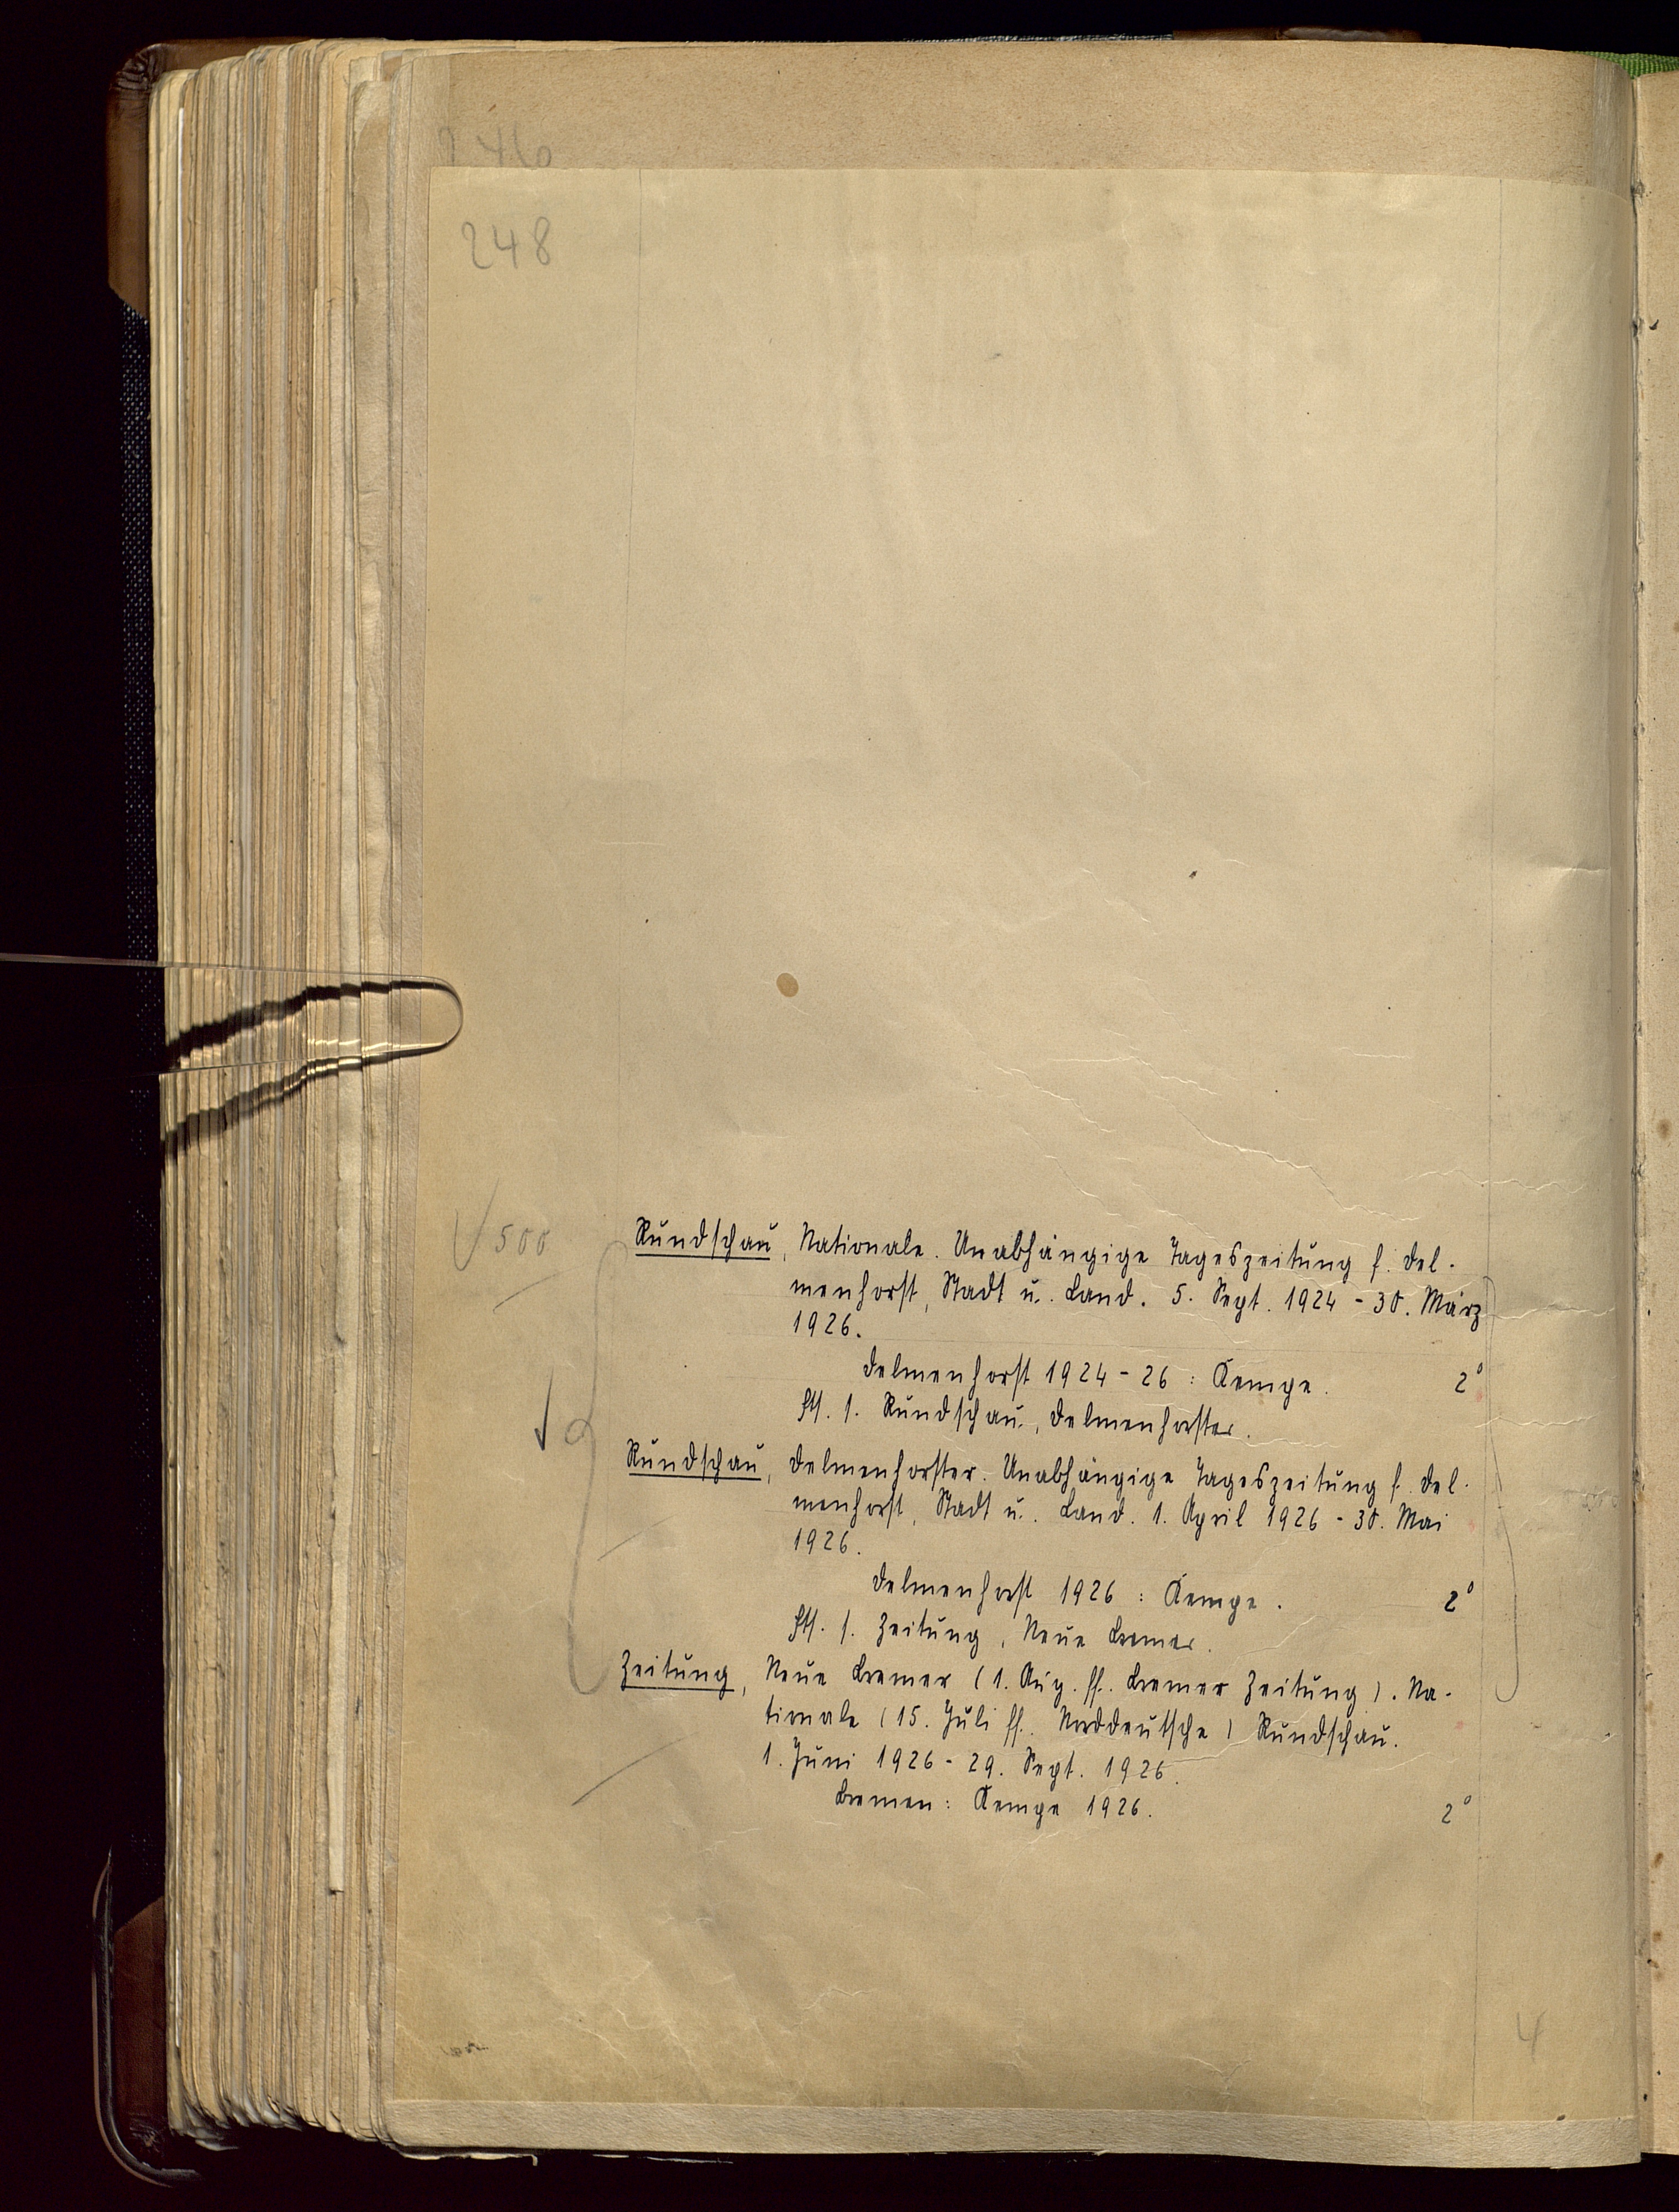 248
500
Rundschau, Nationale. Unabhängige Tageszeitung f. Del-
menhorst, Stadt u. Land. 5. Sept. 1924 - 30. März
1926.
Delmenhorst 1924 - 26 : Kempe. 2°
Fts. s. Rundschau, Delmenhorster.
Rundschau, Delmenhorster. Unabhängige Tageszeitung f. Del-
menhorst, Stadt u. Land. 1. April 1926 - 30. Mai
1926.
Delmenhorst 1926 : Kempe. 2°
Fts. s. Zeitung, Neue Bremer.
Zeitung, Neue Bremer (1. Aug. ff. Bremer Zeitung). Na-
tionale (15. Juli ff. Norddeutsche) Rundschau.
1. Juni 1926 - 29. Sept. 1926.
Bremen: Kempe 1926. 2°
4